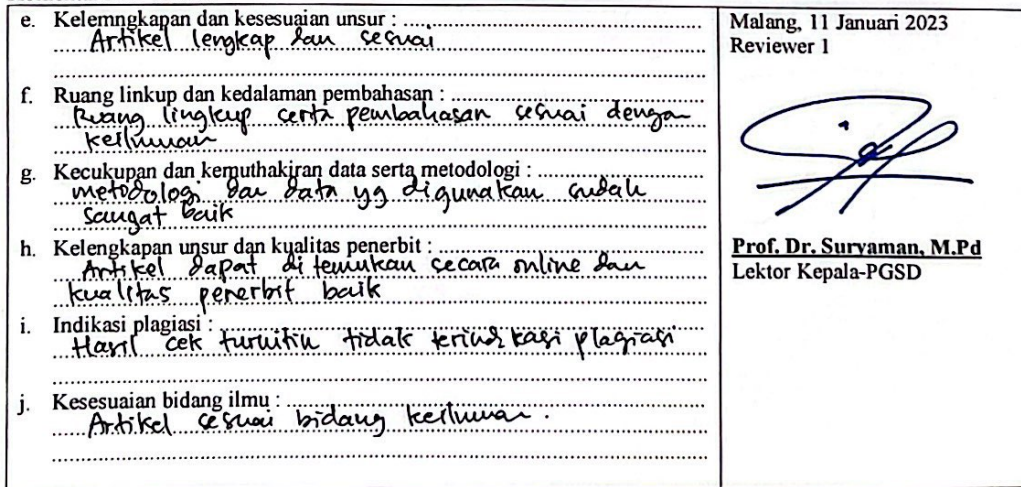 e. Kelemngkapan dan kesesuaian unsur :
Artikel lengkap dan sesuai
f. Ruang linkup dan kedalaman pembahasan :
Ruang lingkup serta pembahasan sesuai dengan
keilmuan
g. Kecukupan dan kemuthakiran data serta metodologi :
metodologi dan data yg digunakan sudah
sangat baik
h. Kelengkapan unsur dan kualitas penerbit :
Artikel dapat di temukan secara online dan
kualitas penerbit baik
i. Indikasi plagiasi :
Hasil cek turnitin tidak terindikasi plagiasi
j. Kesesuaian bidang ilmu :
Artikel sesuai bidang keilmuan.
Malang, 11 Januari 2023
Reviewer 1
Prof. Dr. Suryaman, M.Pd
Lektor Kepala-PGSD